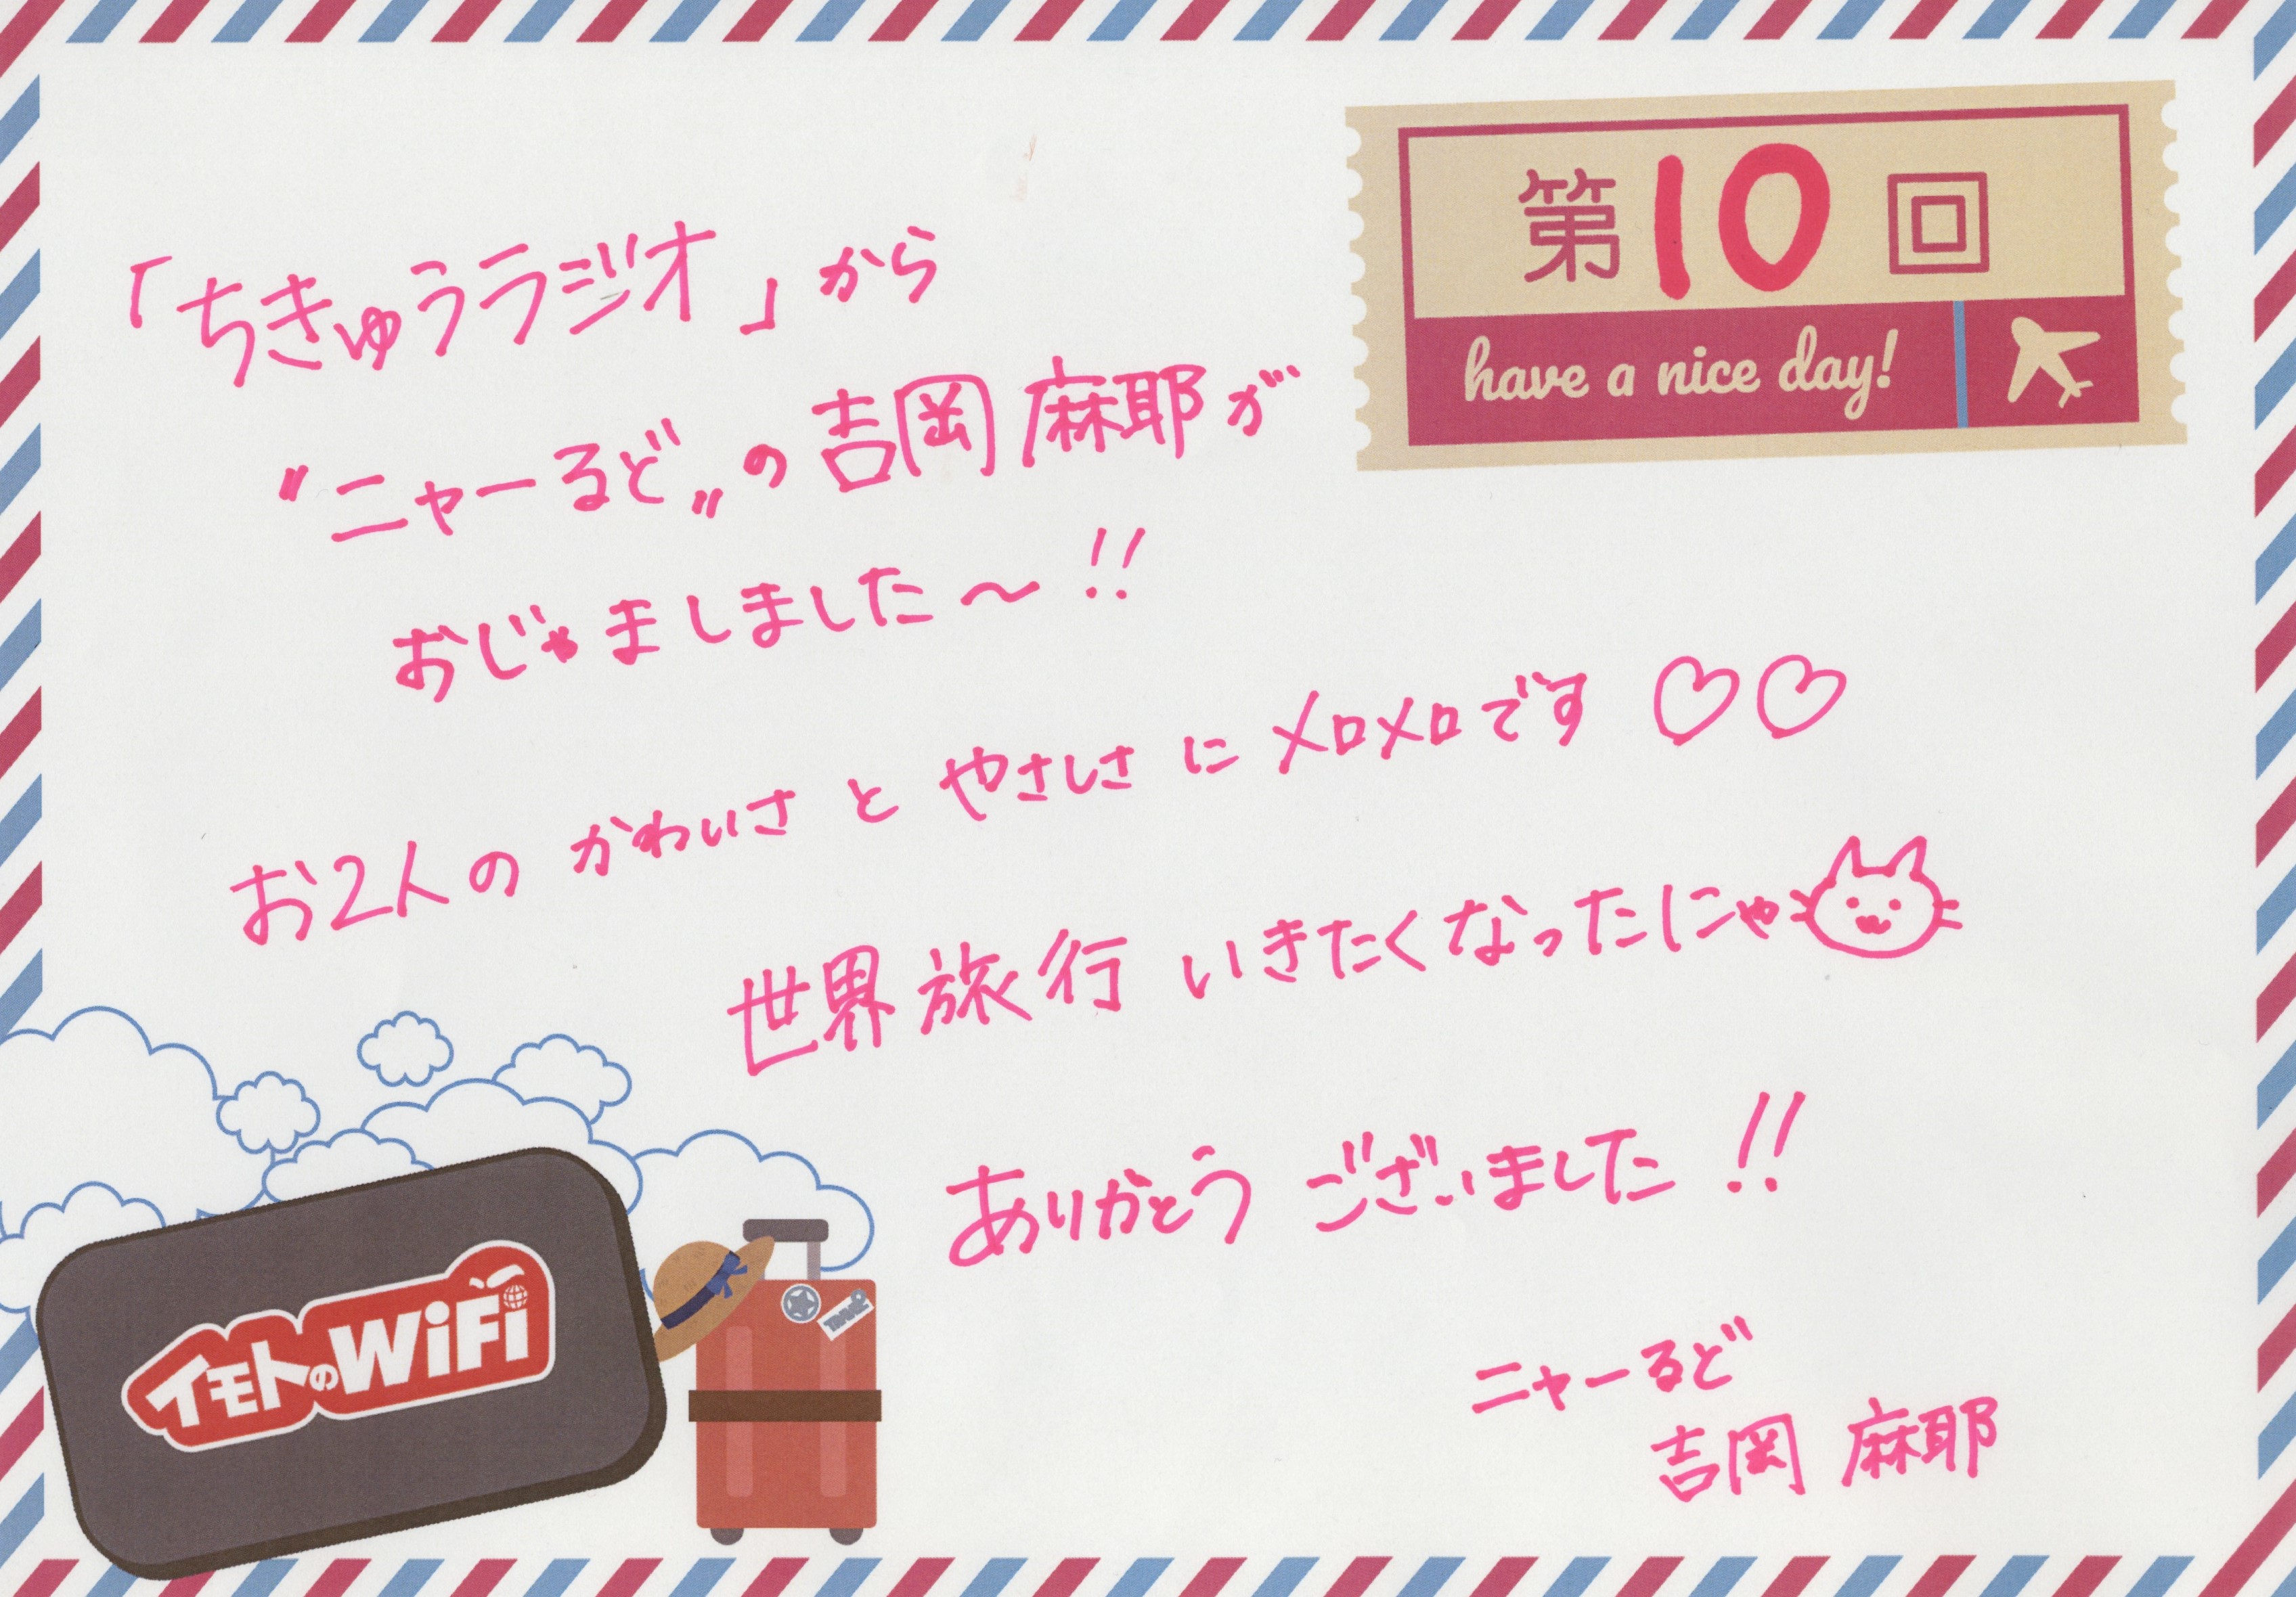 第10回
have a nice day!
「ちきゅうラジオ」から
"ニャーるど"の吉岡麻耶が
おじゃましました〜!!
お2人のかわいさとやさしさにメロメロです♡♡
世界旅行いきたくなったにゃ
ありがとうございました!!
ニャーるど
吉岡 麻耶
イモトのWiFi